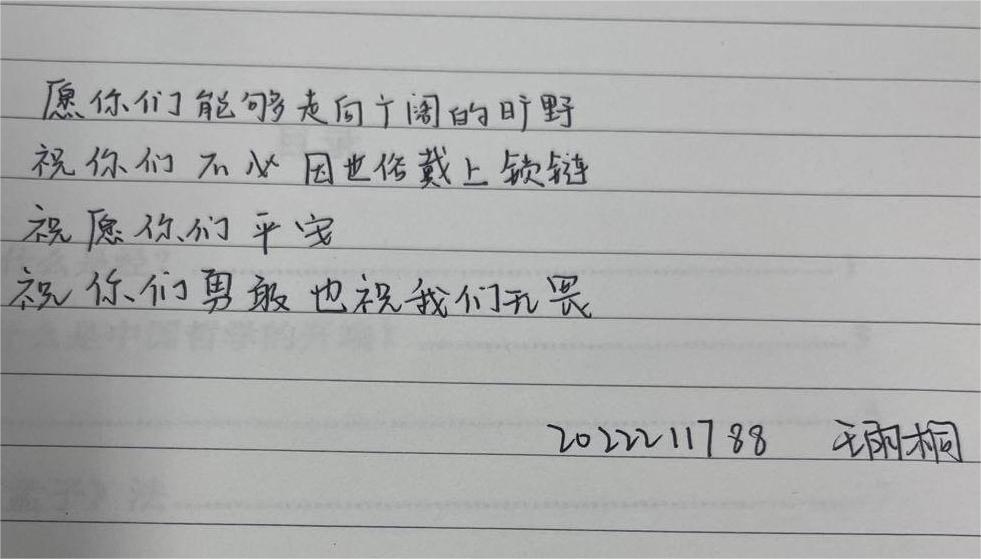 愿你们能够走向广阔的旷野
祝你们不必因世俗戴上锁链
祝愿你们平安
祝你们勇敢也祝我们无畏
2022211788 王雨桐